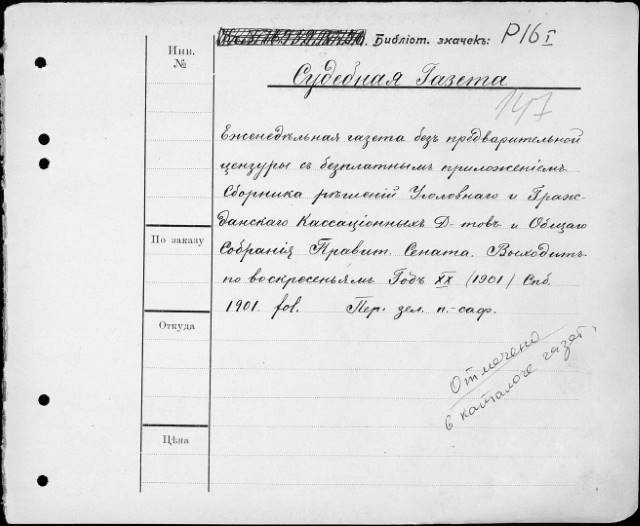 Библіот. значекъ: P16 I
Инв. №
Судебная Газета
147
Еженедѣльная газета безъ предварительной
цензуры съ безплатнымъ приложеніемъ
Сборника рѣшеній Уголовнаго и Граж-
данскаго Кассаціонныхъ Д-товъ и Общаго
По заказу
Собранія Правит. Сената. Выходитъ
по воскресеньямъ Годъ XX (1901) Спб.
1901. fol. Пер. зел. п.-саф.
Откуда
Отмечено
в каталоге газет.
Цѣна